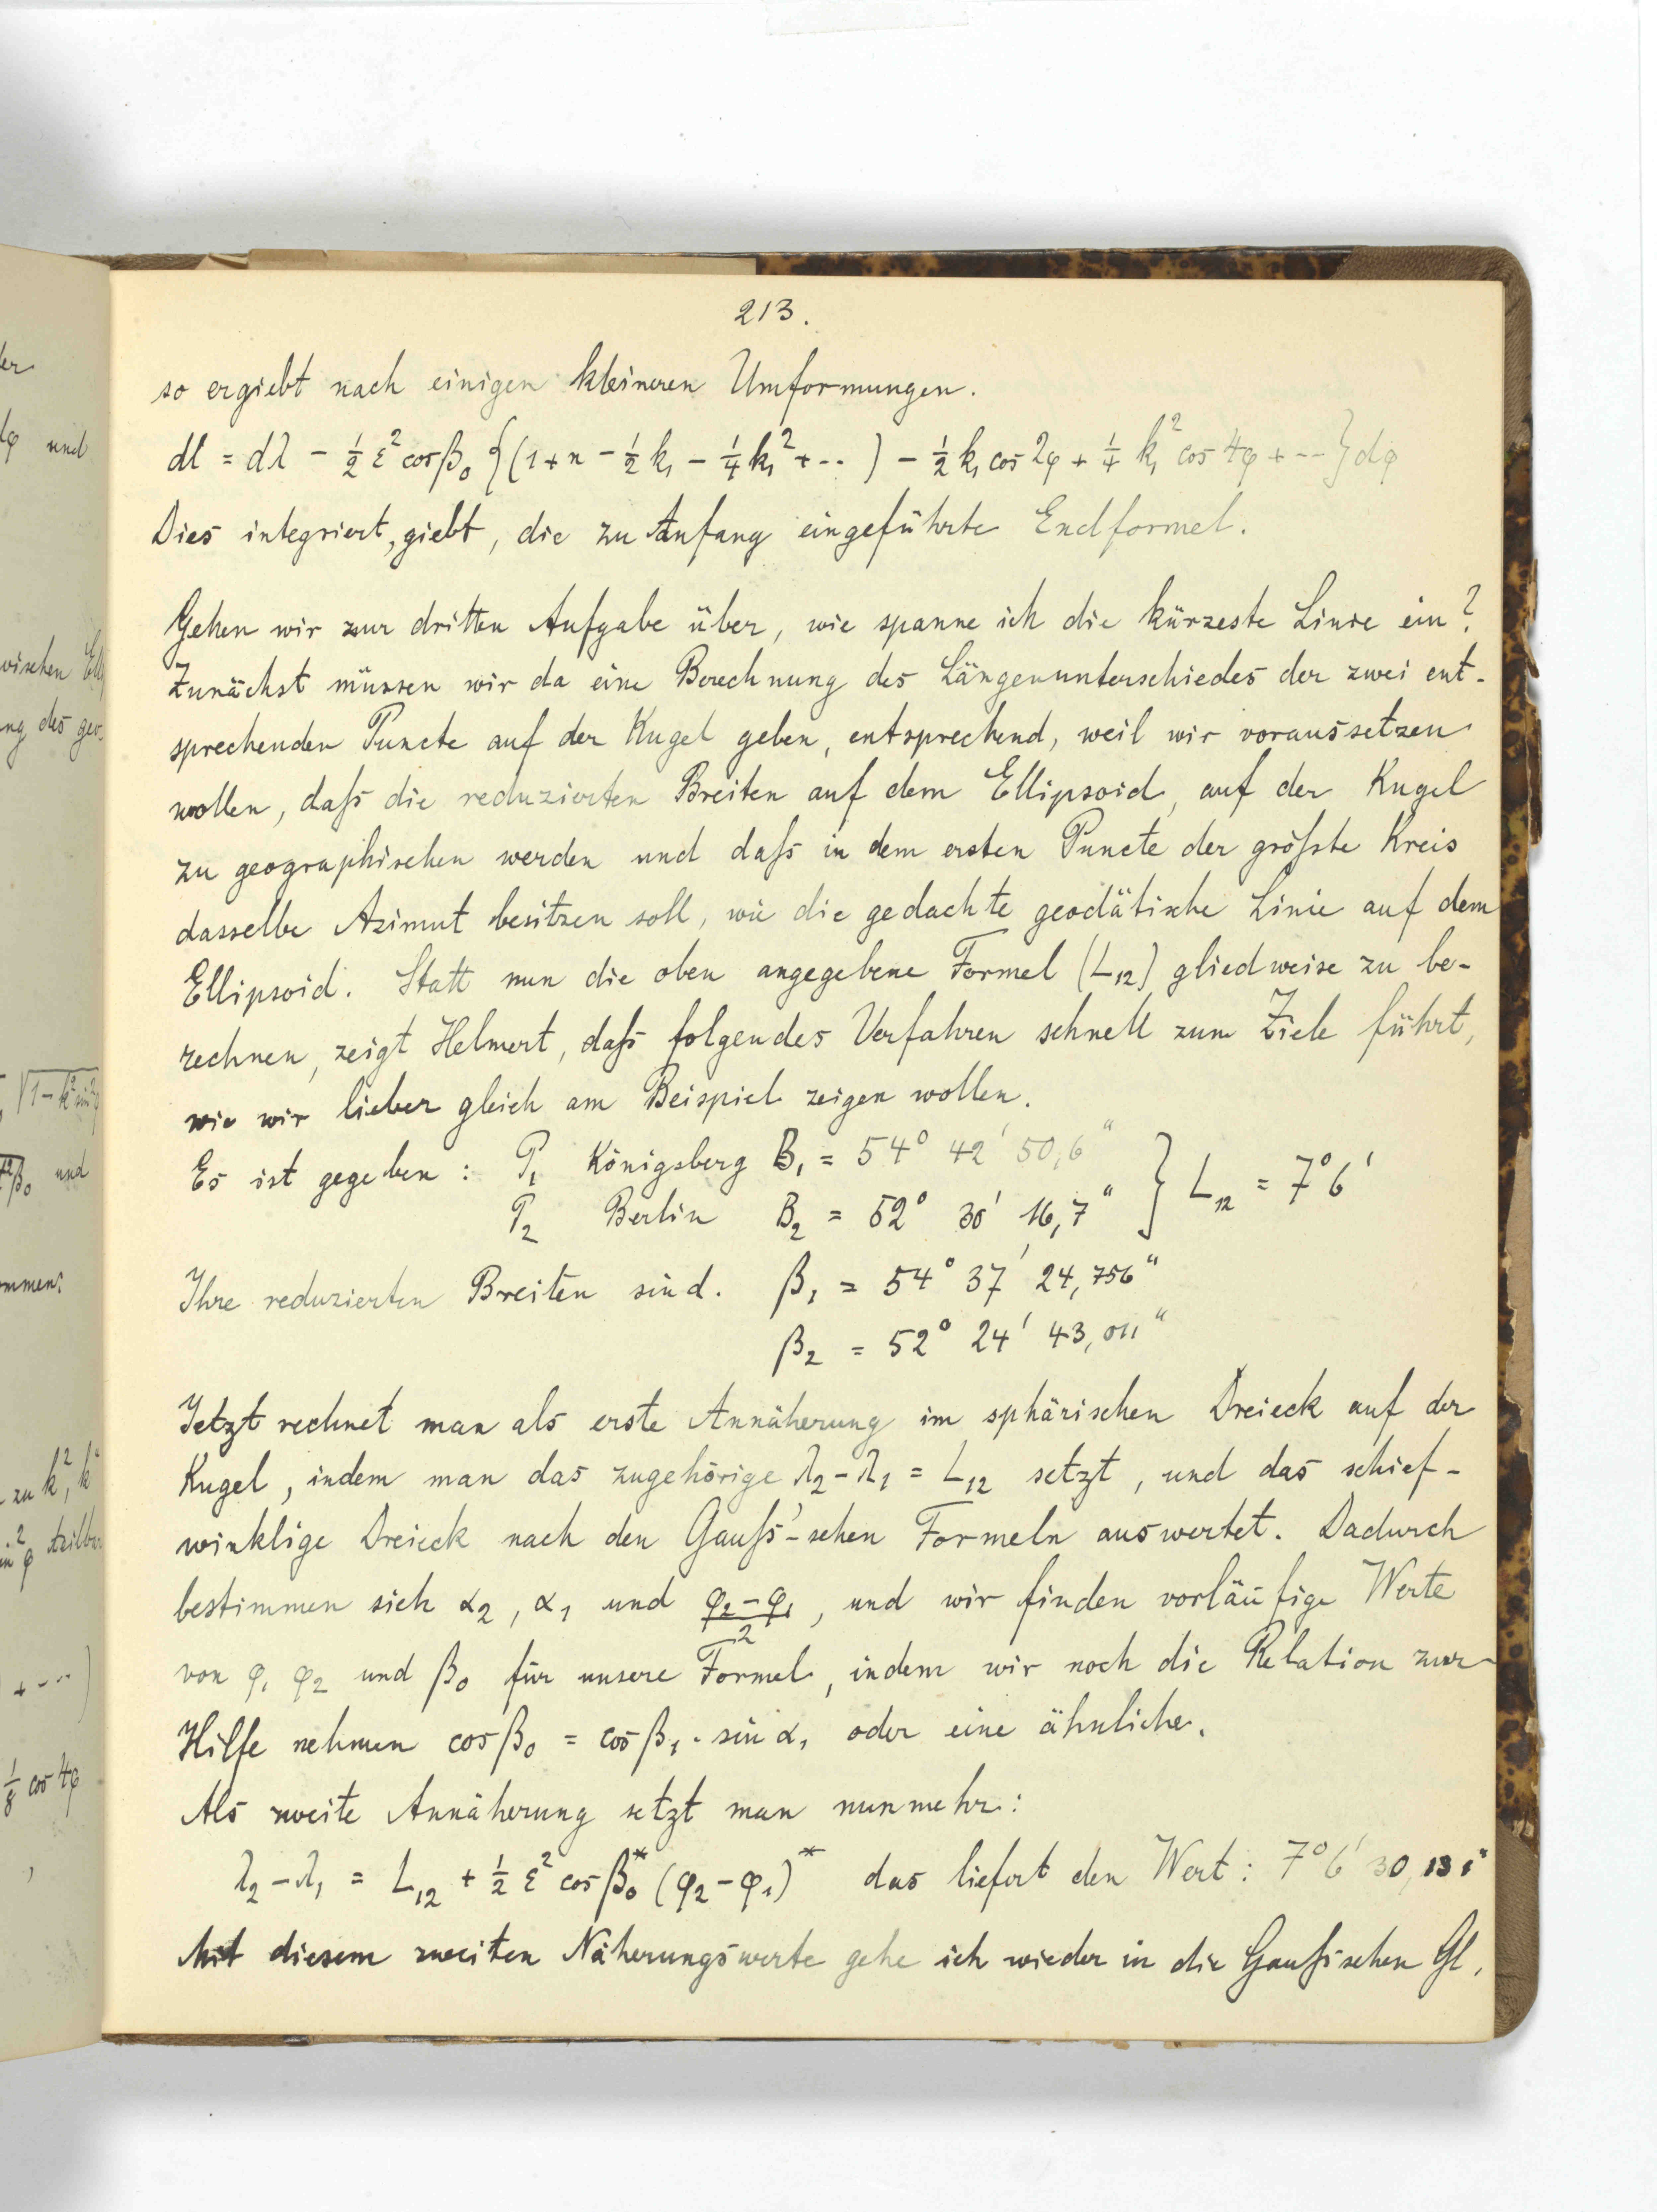 er
213.
so ergiebt nach einigen kleineren Umformungen.
dφ und
dl = dλ - ½ ε² cosβ₀ {(1+n - ½ k₁ - ¼ k₁² + ‥ ) - ½ k₁ cos 2φ + ¼ k₁² cos 4φ + ‥‥} dφ
Dies integriert, giebt, die zu Anfang eingeführte Endformel.
Gehen wir zur dritten Aufgabe über, wie spanne ich die kürzeste Linie ein?
wischen Ell
Zunächst müssen wir da eine Berechnung des Längenunterschiedes der zwei ent-
ng des geo
sprechenden Puncte auf der Kugel geben, entsprechend, weil wir voraussetzen
wollen, daſs die reduzierten Breiten auf dem Ellipsoid, auf der Kugel
zu geographischen werden und daſs in dem ersten Puncte der gröſste Kreis
dasselbe Azimut besitzen soll, wie die gedachte geodätische Linie auf dem
Ellipsoid. Statt nun die oben angegebene Formel (L₁₂) gliedweise zu be-
rechnen, zeigt Helmert, daſs folgendes Verfahren schnell zum Ziele führt,
wie wir lieber gleich am Beispiel zeigen wollen.
Es ist gegeben : P₁ Königsberg B₁ = 54° 42' 50,6" } L₁₂ = 7° 6'
β₀ und
P₂ Berlin B₂ = 52° 30' 16,7"
ommen:
Ihre reduzierten Breiten sind. β₁ = 54° 37' 24,756"
β₂ = 52° 24' 43,011"
Jetzt rechnet man als erste Annäherung im sphärischen Dreieck auf der
zu k²,
Kugel, indem man das zugehörige λ₂-λ₁ = L₁₂ setzt, und das schief-
winklige Dreieck nach den Gauſs'-schen Formeln auswertet. Dadurch
bestimmen sich α₂, α₁ und (φ₂-φ₁)/2, und wir finden vorläufige Werte
+ ‥‥)
von φ₁ φ₂ und β₀ für unsere Formel, indem wir noch die Relation zur
Hilfe nehmen cosβ₀ = cosβ₁ · sin α₁ oder eine ähnliche.
⅛ cos 4φ
Als zweite Annäherung setzt man nunmehr:
λ₂-λ₁ = L₁₂ + ½ ε² cosβ₀* (φ₂-φ₁)* das liefert den Wert: 7° 6' 30,
Mit diesem zweiten Näherungswerte gehe ich wieder in die Gauſsischen Gl.